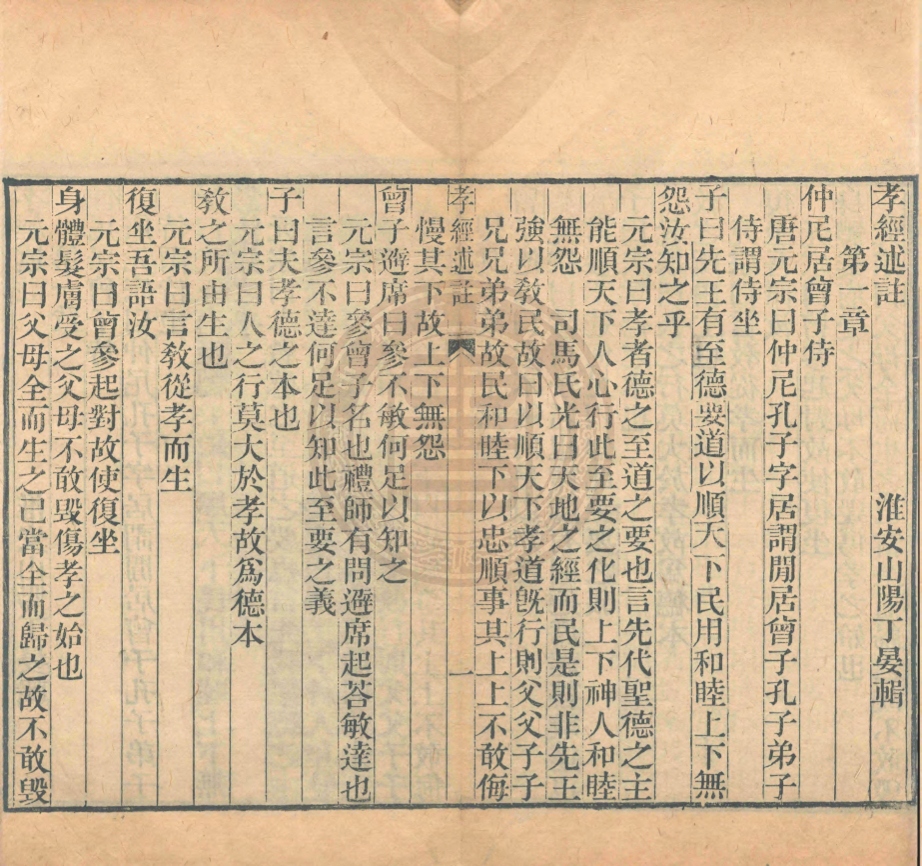 孝經述註　淮安山陽丁晏輯
第一章
仲尼居曾子侍
唐元宗曰仲尼孔子字居謂閒居曾子孔子弟子
侍謂侍坐
子曰先王有至德要道以順天下民用和睦上下無
怨汝知之乎
元宗曰孝者德之至道之要也言先代聖德之主
能順天下人心行此至要之化則上下神人和睦
無怨　司馬氏光曰天地之經而民是則非先王
強以敎民故曰以順天下孝道旣行則父父子子
兄兄弟弟故民和睦下以忠順事其上上不敢侮
孝經述註　一
慢其下故上下無怨
曾子避席曰參不敏何足以知之
元宗曰參曾子名也禮師有問避席起荅敏達也
言參不達何足以知此至要之義
子曰夫孝德之本也
元宗曰人之行莫大於孝故爲德本
敎之所由生也
元宗曰言敎從孝而生
復坐吾語汝
元宗曰曾參起對故使復坐
身體髮膚受之父母不敢毀傷孝之始也
元宗曰父母全而生之己當全而歸之故不敢毀